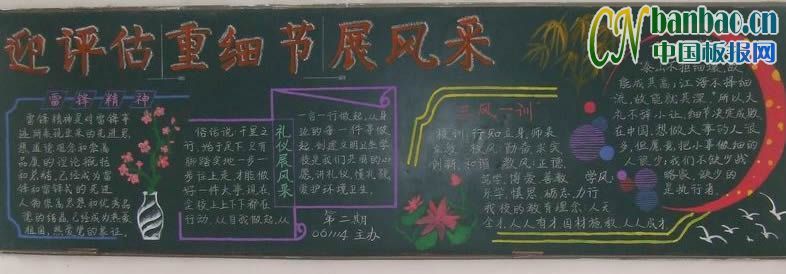 迎评估重细节展风采
CN banbao.cn
中国板报网
雷锋精神
雷锋精神是对雷锋事
迹所表现出来的先进思
想道德观念和崇高
品质的理论概括
和总结,已经成为雷
锋和雷锋式的先进
人物崇高思想和优秀品
质的结晶,已经成为热爱
祖国、热爱党的象征。
俗话说,千里之
行,始于足下,只有
脚踏实地一步一
步往上走,才能做
好一件大事,现在
全校上上下下都在
行动,从自我做起,从
礼仪展风采
一言一行做起,从身
边的每一件事做
起,创建文明五星学
校是我们美丽的心
愿,讲礼仪,懂礼貌,
爱护环境卫生。
第二期
061114主办
三风一训
校训:行知立身,师表
立范 校风:勤奋,求实
创新,和谐 教风:正德,
笃学,博爱,善教
学风:
乐学,慎思,砺志,力行
我校的教育理念:人无
全才,人人有才,因材施教,人人成才
泰山不拒细壤,故
能成其高;江海不择细
流,故能就其深。所以,大
礼不辞小让,细节决定成败
在中国,想做大事的人很
多,但愿意把小事做细的
人很少;我们不缺少战
略家,缺少的
是执行者。